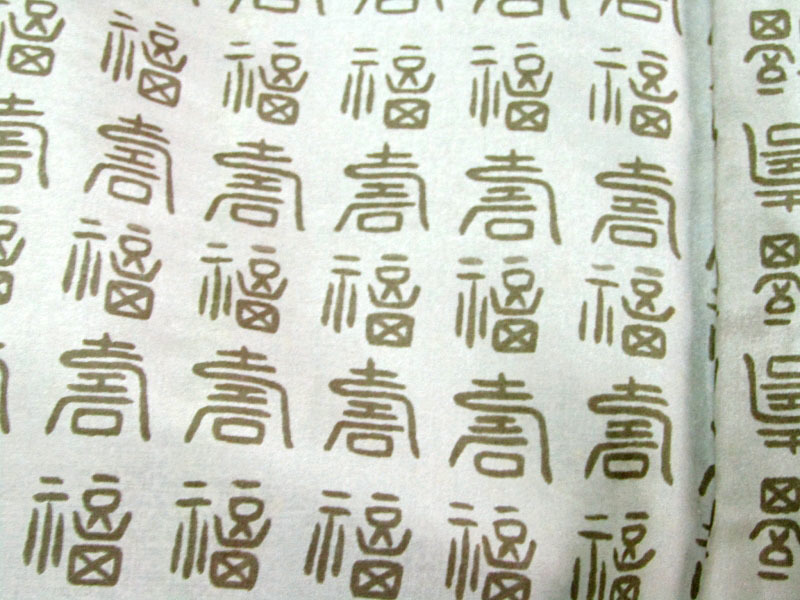 福福福福福福
壽壽壽壽壽壽
福福福福福
壽壽壽壽壽
福福福福福